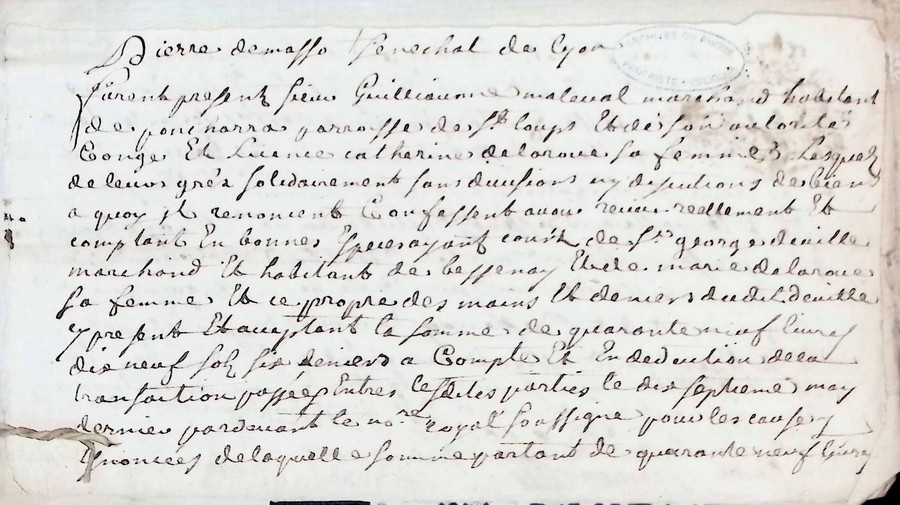 Pierre demasso Senechal de Lyon
furent present sieur Guilliaume maleval marchand habitant
de poncharra parroisse de St loups Et de son autorité
Conge Et licence catherine delaroue sa femme Lesquelz
de leurs grés solidairement sans divisions ny discutions de biens
a quoy ilz renoncent Confessent avoir receu reellement Et
comptant En bonnes Especes ayant cours de Sr george deville
marchand Et habitant de bessenay Et de marie delaroue
sa femme Et ce propre des mains Et deniers dudit deville
y present Et acceptant la somme de quarante neuf livres
dix neuf solz six deniers a Compte Et En deduction de la
transaction passée Entre lesdites parties le dix septieme may
dernier pardevant le nore royal soussigne pour les causes y
Enoncées de laquelle somme partant de quarante neuf livres